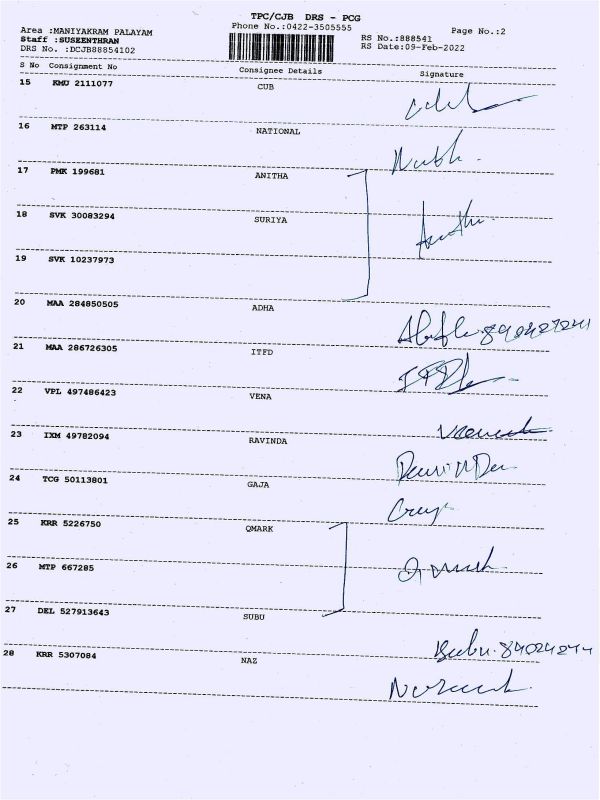 TPC/CJB DRS - PCG
Area :MANIYAKRAM PALAYAM Phone No.:0422-3505555 Page No.:2
Staff :SUSEENTHRAN RS No.:888541
DRS No. :DCJB88854102 RS Date:09-Feb-2022
S No Consignment No Consignee Details Signature
15 KMU 2111077 CUB
16 MTP 263114 NATIONAL
17 PMK 199681 ANITHA
18 SVK 30083294 SURIYA
19 SVK 10237973
20 MAA 284850505 ADHA
21 MAA 286726305 ITFD
22 VPL 497486423 VENA
23 IXM 49782094 RAVINDA
24 TCG 50113801 GAJA
25 KRR 5226750 QMARK
26 MTP 667285
27 DEL 527913643 SUBU
28 KRR 5307084 NAZ